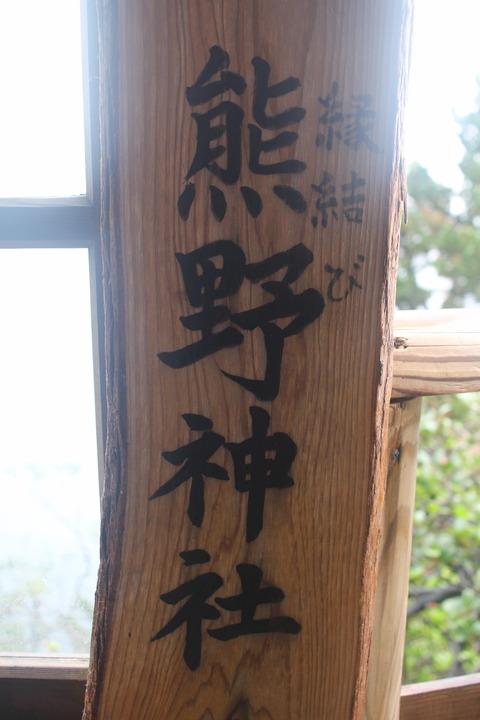 縁結び
熊野神社